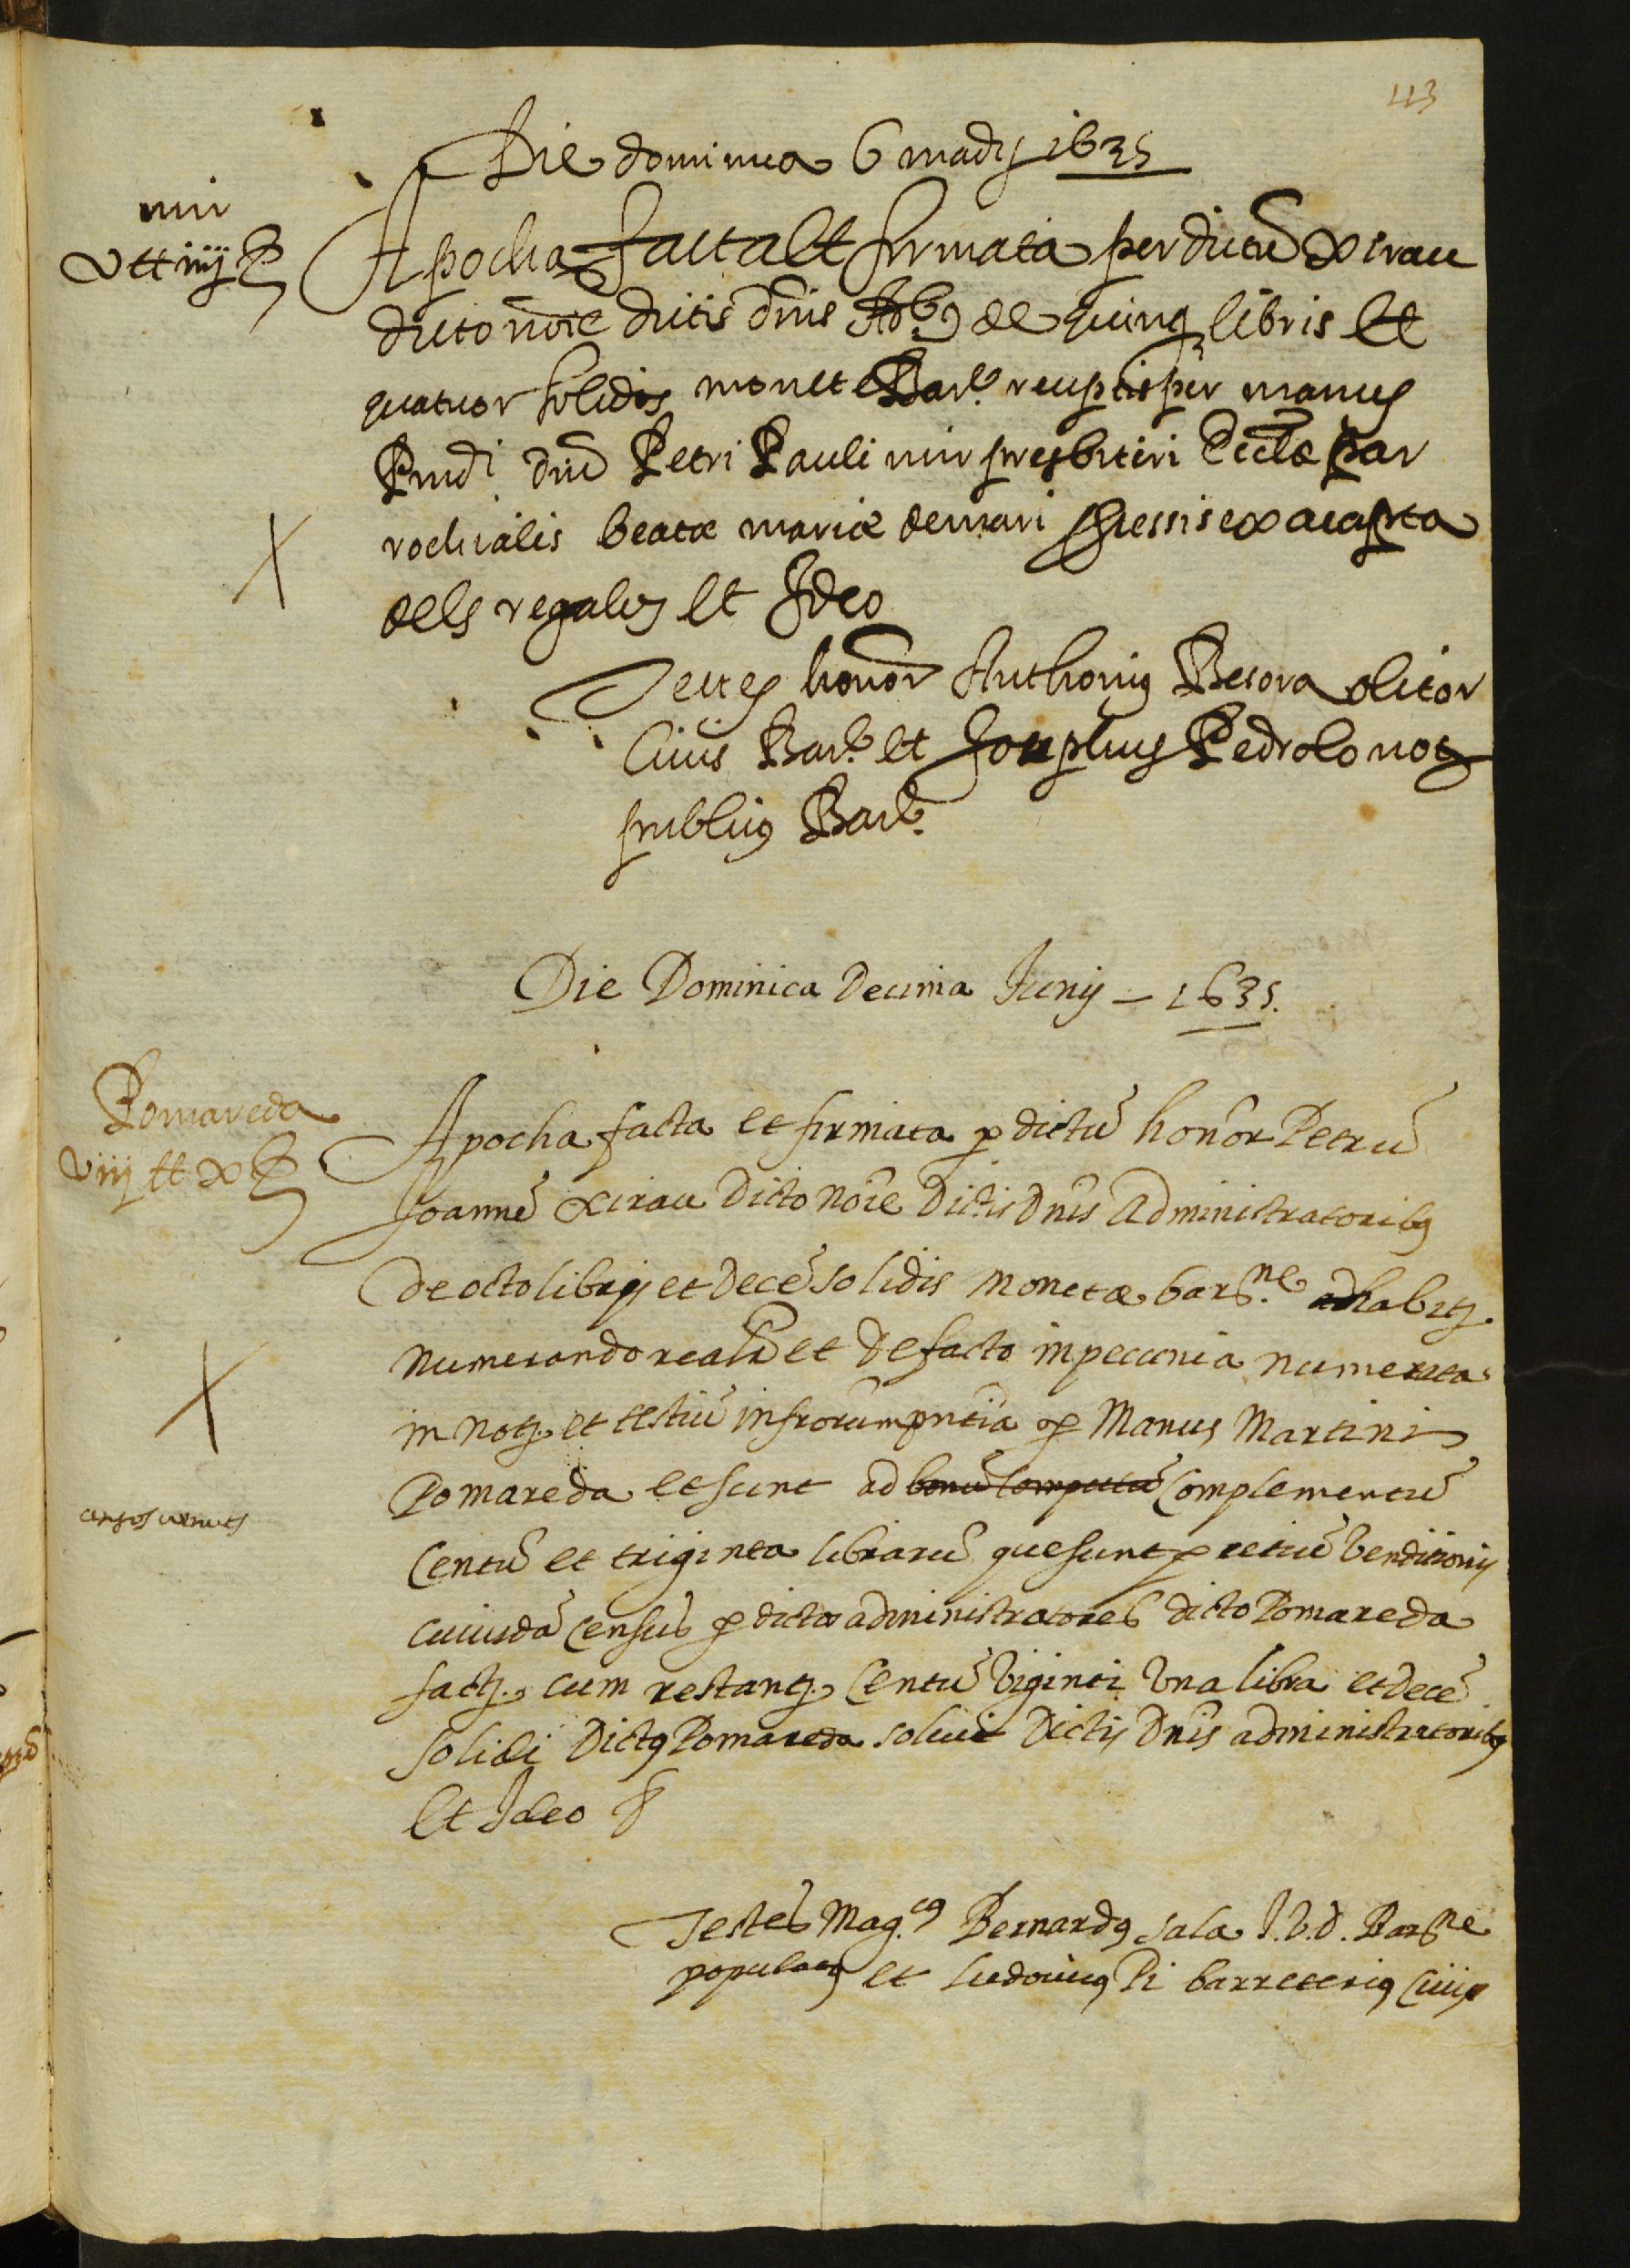 113
Die dominica 6 madij 1635
mir
V tt iiij ß
Apocha facta et firmata per dictũ xirau
dicto nõie dictis dñis Adbꝯ de quinqꝫ libris et
quatuor solidis monete Barᵉ receptis per manus
Rndi dñi Petri Pauli mir presbiteri Ecclæ par
rochialis beatæ mariæ demari
dels regales et Ideo
Testes honor Anthoniꝯ Besora olitor
Civis Barᵉ et Josephus Pedrolo notꝫ
publicꝯ Barᵉ
Die Dominica Decima Junij — 1635.
Pomareda
Viij tt x ß
Apocha facta et firmata ꝑ dictũ honor Petrũ
Joannẽ xirau Dicto Nõie Dictis Dñis Administratoribꝯ
de octo libris et Decẽ solidis Monetæ barꝰⁿᵉ habitꝫ
Numerando realr̃ et de facto in pecunia numerata
in Notꝫ et testiũ infrorum pñtia ꝑ Manus Martini
Pomareda et sunt ad bonũ computũ Complementũ
Centũ et triginta librarũ que sunt ꝑ retiũ Venditionis
cuiusdã Census ꝑ dictos administratores dicto Pomareda
factꝫ. cum restantꝫ. Centũ Viginti Una libra et decẽ
solidi Dictꝯ Pomareda solvit Dictis Dñis administratoribꝯ
Et Ideo
Testes Mag.ᶜꝯ Bernardꝯ sala J.V.d. Barꝰⁿᵉ
populatꝯ et Ludovicꝯ Pi barreteriꝯ Civis